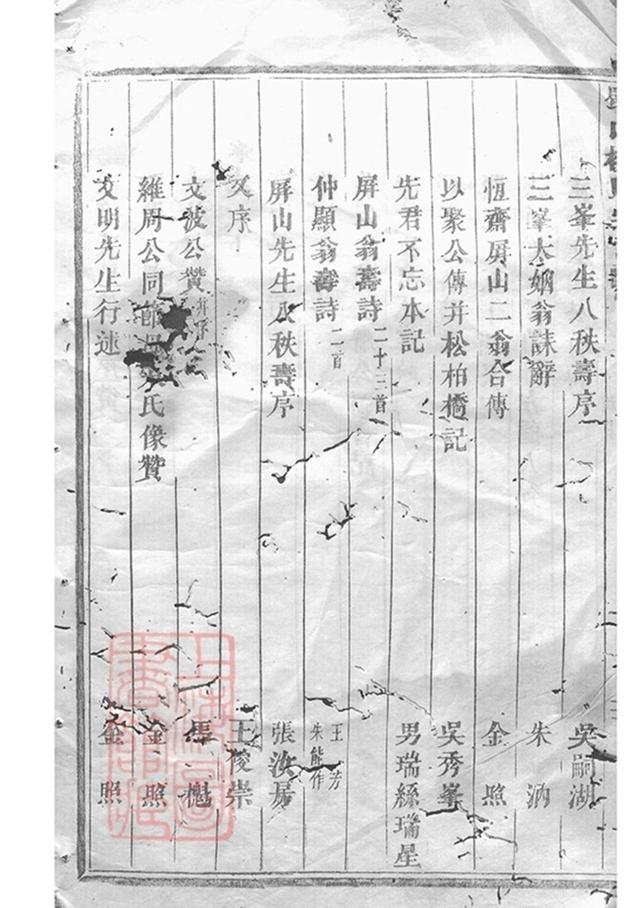 三峯先生八秩壽序 吳嗣湖
三峯大姻翁誄辭 朱汭
恆齋屏山二翁合傳 金照
以聚公傳并松柏橋記 吳秀峯
先君不忘本記 男瑞絲瑞星
屏山翁壽詩二十三首
仲顯翁壽詩二首 王芳 朱能作
屏山先生八秩壽序 張汝房
又序 王俊崇
文波公贊并序 馬樾
維周公同氏像贊 金照
文明先生行述 金照